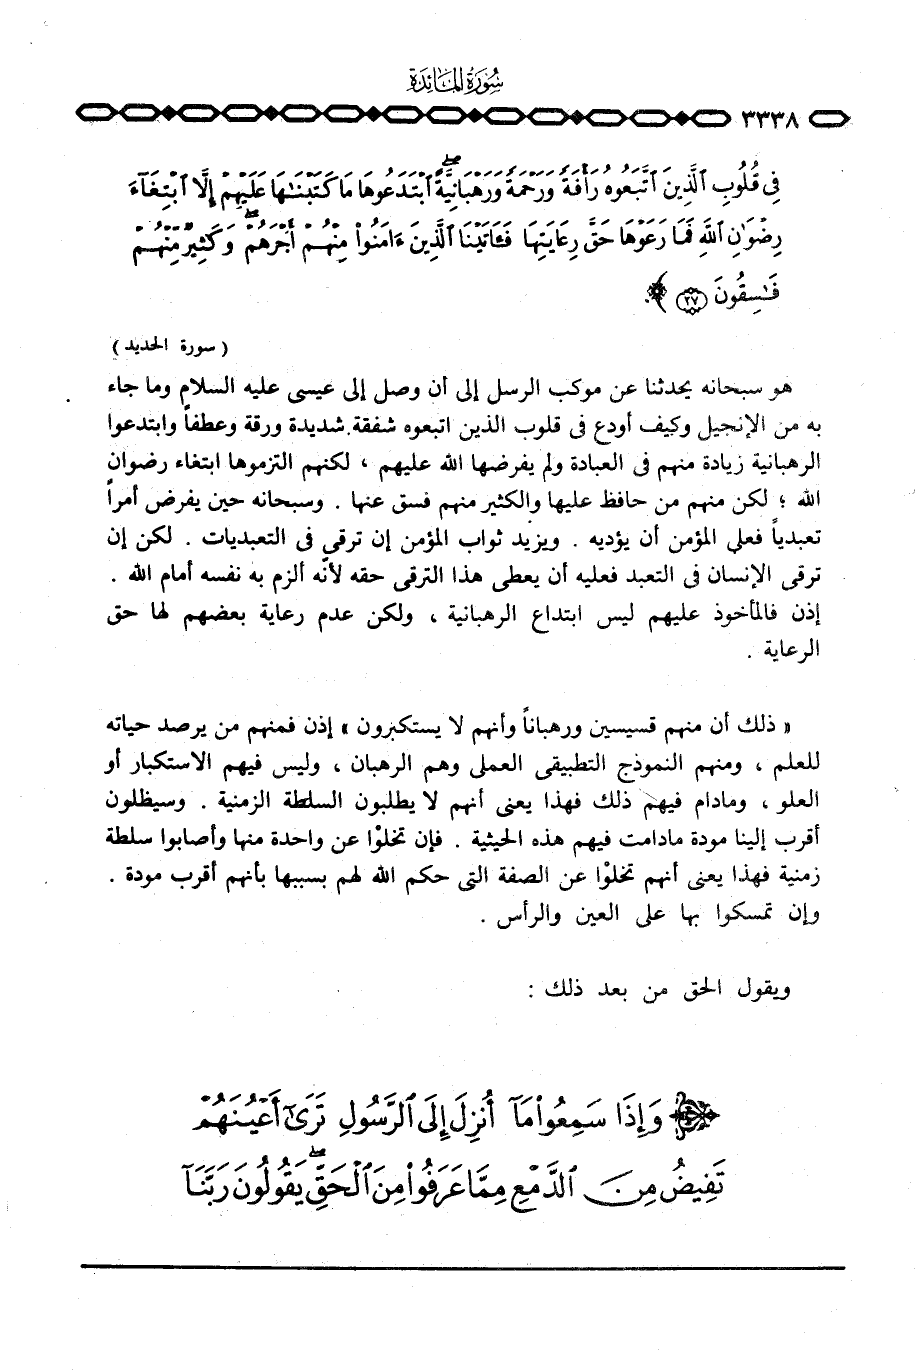 سُورَةُ المَائِدَةِ
٣٣٣٨
فِى قُلُوبِ ٱلَّذِينَ ٱتَّبَعُوهُ رَأْفَةً وَرَحْمَةً وَرَهْبَانِيَّةً ٱبْتَدَعُوهَا مَا كَتَبْنَٰهَا عَلَيْهِمْ إِلَّا ٱبْتِغَآءَ
رِضْوَٰنِ ٱللَّهِ فَمَا رَعَوْهَا حَقَّ رِعَايَتِهَا فَـَٔاتَيْنَا ٱلَّذِينَ ءَامَنُوا۟ مِنْهُمْ أَجْرَهُمْ ۖ وَكَثِيرٌ مِّنْهُمْ
فَٰسِقُونَ ٢٧ ﴾
( سورة الحديد )
هو سبحانه يحدثنا عن موكب الرسل إلى أن وصل إلى عيسى عليه السلام وما جاء
به من الإنجيل وكيف أودع فى قلوب الذين اتبعوه شفقة شديدة ورقة وعطفاً وابتدعوا
الرهبانية زيادة منهم فى العبادة ولم يفرضها الله عليهم ، لكنهم التزموها ابتغاء رضوان
الله ؛ لكن منهم من حافظ عليها والكثير منهم فسق عنها . وسبحانه حين يفرض أمراً
تعبدياً فعلى المؤمن أن يؤديه . ويزيد ثواب المؤمن إن ترقى فى التعبديات . لكن إن
ترقى الإنسان فى التعبد فعليه أن يعطى هذا الترقى حقه لأنه ألزم به نفسه أمام الله .
إذن فالمأخوذ عليهم ليس ابتداع الرهبانية ، ولكن عدم رعاية بعضهم لها حق
الرعاية .
« ذلك أن منهم قسيسين ورهباناً وأنهم لا يستكبرون » إذن فمنهم من يرصد حياته
للعلم ، ومنهم النموذج التطبيقى العملى وهم الرهبان ، وليس فيهم الاستكبار أو
العلو ، ومادام فيهم ذلك فهذا يعنى أنهم لا يطلبون السلطة الزمنية . وسيظلون
أقرب إلينا مودة مادامت فيهم هذه الحيثية . فإن تخلوْا عن واحدة منها وأصابوا سلطة
زمنية فهذا يعنى أنهم تخلوْا عن الصفة التى حكم الله لهم بسببها بأنهم أقرب مودة .
وإن تمسكوا بها على العين والرأس .
ويقول الحق من بعد ذلك :
﴿ وَإِذَا سَمِعُوا۟ مَآ أُنزِلَ إِلَى ٱلرَّسُولِ تَرَىٰٓ أَعْيُنَهُمْ
تَفِيضُ مِنَ ٱلدَّمْعِ مِمَّا عَرَفُوا۟ مِنَ ٱلْحَقِّ ۖ يَقُولُونَ رَبَّنَآ